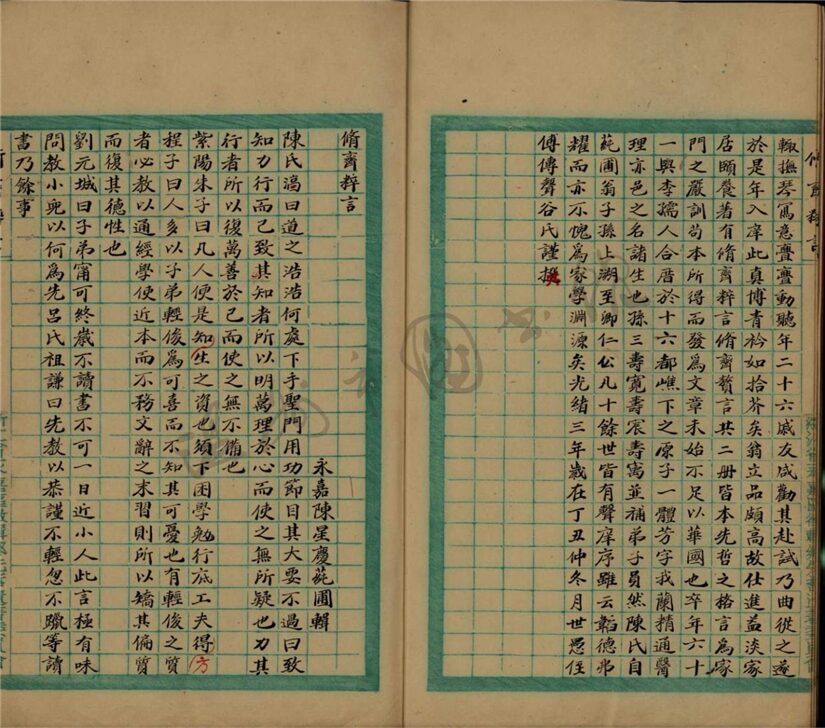 脩齋粹言
輙撫琴寫意亹亹動聽年二十六戚友咸勸其赴試乃曲從之遂
於是年入庠此真博青衿如拾芥矣翁立品頗高故仕進益淡家
居頤養著有脩齋粹言脩齋贅言共二册皆本先哲之格言為家
門之嚴訓苟本所得而發為文章未始不足以華國也卒年六十
一與李孺人合厝於十六都嶕下之原子一體芳字我蘭精通醫
理亦邑之名諸生也孫三壽寬壽宸壽寓並補弟子員然陳氏自
莼圃翁子孫上溯至卿仁公凡十餘世皆有聲庠序雖云韜德弗
耀而亦不愧為家學淵源矣光緒三年歲在丁丑仲冬月世愚侄
傅傳聲谷氏謹撰
脩齋粹言
永嘉陳星慶莼圃輯
陳氏澔曰道之浩浩何處下手聖門用功節目其大要不過曰致
知力行而已致其知者所以明萬理於心而使之無所疑也力其
行者所以復萬善於己而使之無不備也
紫陽朱子曰凡人便是知生之資也須下困學勉行底工夫得方
程子曰人多以子弟輕俊為可喜而不知其可憂也有輕俊之質
者必教以通經學使近本而不務文辭之末習則所以矯其偏質
而復其德性也
劉元城曰子弟甯可終歲不讀書不可一日近小人此言極有味
問教小兒以何為先呂氏祖謙曰先教以恭謹不輕忽不躐等讀
書乃餘事